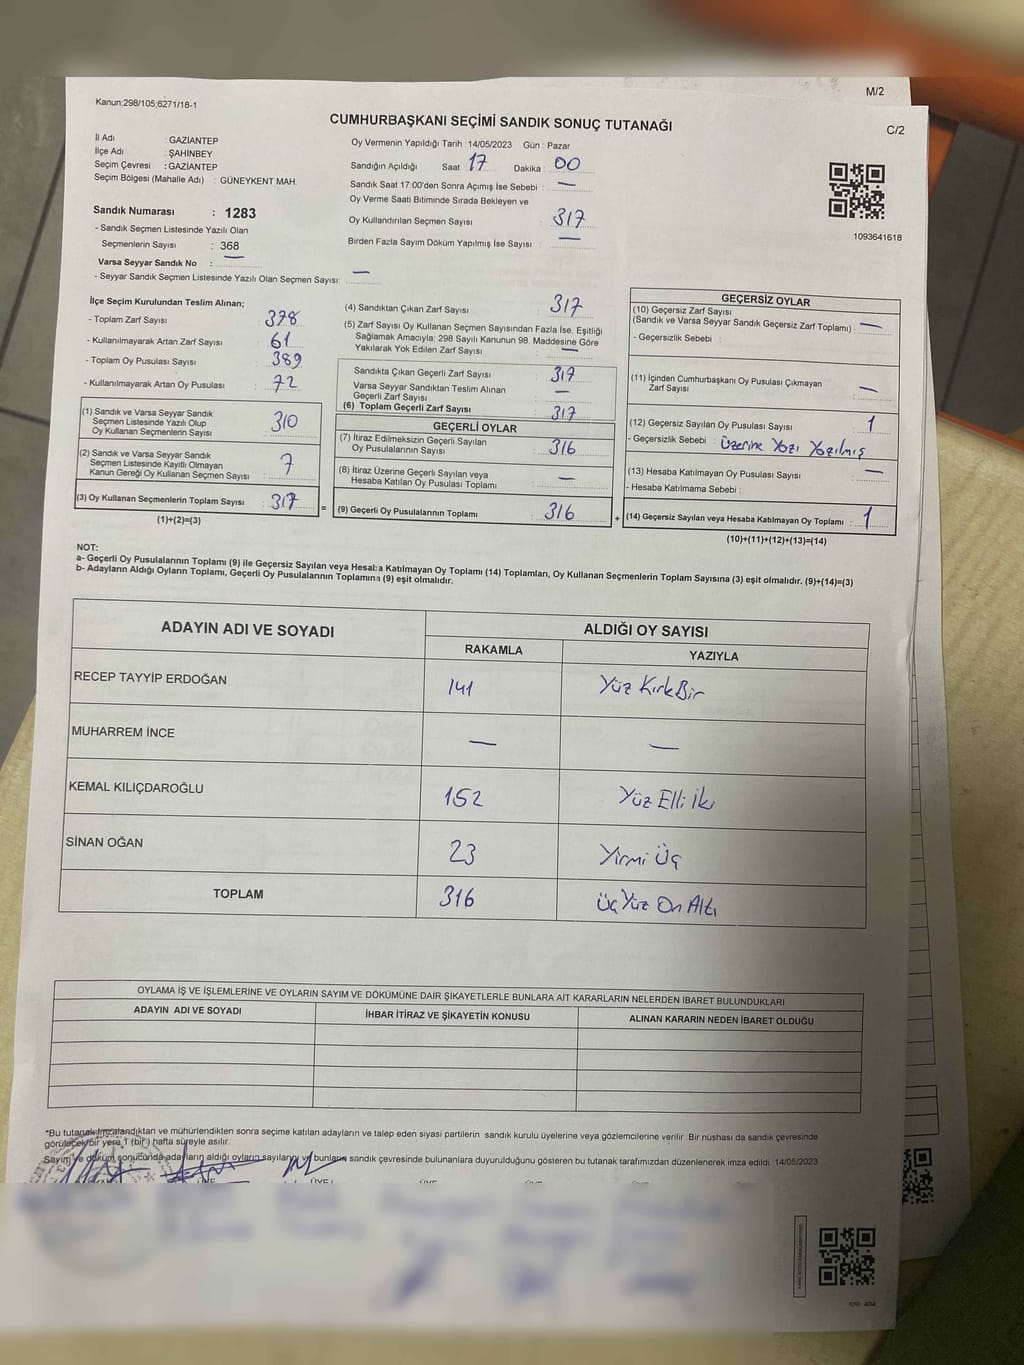 M/2
Kanun;298/105;6271/18-1
C/2
CUMHURBAŞKANI SEÇİMİ SANDIK SONUÇ TUTANAĞI
İl Adı : GAZİANTEP
İlçe Adı : ŞAHİNBEY
Seçim Çevresi : GAZİANTEP
Seçim Bölgesi (Mahalle Adı) : GÜNEYKENT MAH.
Sandık Numarası : 1283
- Sandık Seçmen Listesinde Yazılı Olan
Seçmenlerin Sayısı : 368
Varsa Seyyar Sandık No : —
- Seyyar Sandık Seçmen Listesinde Yazılı Olan Seçmen Sayısı: —
Oy Vermenin Yapıldığı Tarih 14/05/2023 Gün : Pazar
Sandığın Açıldığı Saat 17 Dakika : 00
Sandık Saat 17.00'den Sonra Açımış İse Sebebi : —
Oy Verme Saati Bitiminde Sırada Bekleyen ve
Oy Kullandırılan Seçmen Sayısı : 317
Birden Fazla Sayım Döküm Yapılmış İse Sayısı : —
1093641618
İlçe Seçim Kurulundan Teslim Alınan;
- Toplam Zarf Sayısı : 378
- Kullanılmayarak Artan Zarf Sayısı : 61
- Toplam Oy Pusulası Sayısı : 389
- Kullanılmayarak Artan Oy Pusulası : 72
(1) Sandık ve Varsa Seyyar Sandık
Seçmen Listesinde Yazılı Olup
Oy Kullanan Seçmenlerin Sayısı : 310
(2) Sandık ve Varsa Seyyar Sandık
Seçmen Listesinde Kayıtlı Olmayan
Kanun Gereği Oy Kullanan Seçmen Sayısı : 7
(3) Oy Kullanan Seçmenlerin Toplam Sayısı : 317
(1)+(2)=(3)
=
(4) Sandıktan Çıkan Zarf Sayısı : 317
(5) Zarf Sayısı Oy Kullanan Seçmen Sayısından Fazla İse, Eşitliği
Sağlamak Amacıyla; 298 Sayılı Kanunun 98. Maddesine Göre
Yakılarak Yok Edilen Zarf Sayısı : —
Sandıkta Çıkan Geçerli Zarf Sayısı : 317
Varsa Seyyar Sandıktan Teslim Alınan
Geçerli Zarf Sayısı : —
(6) Toplam Geçerli Zarf Sayısı : 317
GEÇERLİ OYLAR
(7) İtiraz Edilmeksizin Geçerli Sayılan
Oy Pusulalarının Sayısı : 316
(8) İtiraz Üzerine Geçerli Sayılan veya
Hesaba Katılan Oy Pusulası Toplamı : —
(9) Geçerli Oy Pusulalarının Toplamı : 316
+
GEÇERSİZ OYLAR
(10) Geçersiz Zarf Sayısı
(Sandık ve Varsa Seyyar Sandık Geçersiz Zarf Toplamı) : —
- Geçersizlik Sebebi :
(11) İçinden Cumhurbaşkanı Oy Pusulası Çıkmayan
Zarf Sayısı : —
(12) Geçersiz Sayılan Oy Pusulası Sayısı : 1
- Geçersizlik Sebebi : Üzerine Yazı Yazılmış
(13) Hesaba Katılmayan Oy Pusulası Sayısı : —
- Hesaba Katılmama Sebebi :
(14) Geçersiz Sayılan veya Hesaba Katılmayan Oy Toplamı : 1
(10)+(11)+(12)+(13)=(14)
NOT:
a- Geçerli Oy Pusulalarının Toplamı (9) ile Geçersiz Sayılan veya Hesaba Katılmayan Oy Toplamı (14) Toplamları, Oy Kullanan Seçmenlerin Toplam Sayısına (3) eşit olmalıdır. (9)+(14)=(3)
b- Adayların Aldığı Oyların Toplamı, Geçerli Oy Pusulalarının Toplamına (9) eşit olmalıdır.
ADAYIN ADI VE SOYADI
ALDIĞI OY SAYISI
RAKAMLA YAZIYLA
RECEP TAYYİP ERDOĞAN 141 Yüz Kırk Bir
MUHARREM İNCE — —
KEMAL KILIÇDAROĞLU 152 Yüz Elli İki
SİNAN OĞAN 23 Yirmi Üç
TOPLAM 316 Üç Yüz On Altı
OYLAMA İŞ VE İŞLEMLERİNE VE OYLARIN SAYIM VE DÖKÜMÜNE DAİR ŞİKAYETLERLE BUNLARA AİT KARARLARIN NELERDEN İBARET BULUNDUKLARI
ADAYIN ADI VE SOYADI İHBAR İTİRAZ VE ŞİKAYETİN KONUSU ALINAN KARARIN NEDEN İBARET OLDUĞU
*Bu tutanak imzalandıktan ve mühürlendikten sonra seçime katılan adayların ve talep eden siyasi partilerin sandık kurulu üyelerine veya gözlemcilerine verilir. Bir nüshası da sandık çevresinde
görülecek bir yere 1 (bir ) hafta süreyle asılır.
Sayım ve döküm sonucunda adayların aldığı oyların sayıların bunların sandık çevresinde bulunanlara duyurulduğunu gösteren bu tutanak tarafımızdan düzenlenerek imza edildi. 14/05/2023